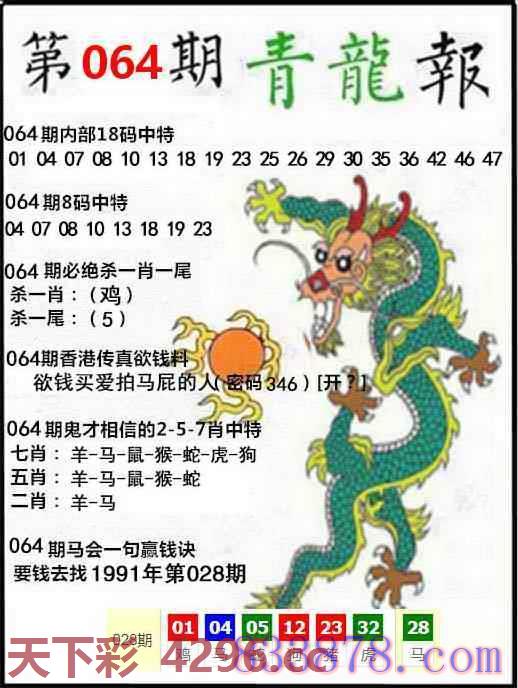 第064期青龍報
064期内部18码中特
01 04 07 08 10 13 18 19 23 25 26 29 30 35 36 42 46 47
064期8码中特
04 07 08 10 13 18 19 23
064期必绝杀一肖一尾
杀一肖：（鸡）
杀一尾：（5）
064期香港传真欲钱料
欲钱买爱拍马屁的人(密码346)[开?]
064期鬼才相信的2-5-7肖中特
七肖：羊-马-鼠-猴-蛇-虎-狗
五肖：羊-马-鼠-猴-蛇
二肖：羊-马
064期马会一句赢钱诀
要钱去找1991年第028期
028期 01 04 05 12 23 32 28
鸡 马 蛇 狗 猪 虎 马
天下彩 4296.cc